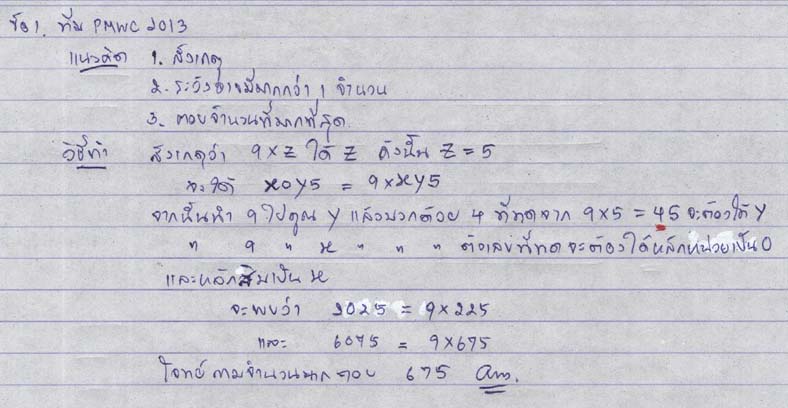 ข้อ 1. ทีม PMWC 2013
แนวคิด 1. สังเกตุ
2. ระวังอาจมีมากกว่า 1 จำนวน
3. ตอบจำนวนที่มากที่สุด
วิธีทำ สังเกตุว่า 9×Z ได้ Z ดังนั้น Z = 5
จะได้ x0y5 = 9×xy5
จากนั้นนำ 9 ไปคูณ y แล้วบวกด้วย 4 ที่ทดจาก 9×5 = 45 จะต้องได้ y
" 9 " x " " " ตัวเลขที่ทด จะต้องได้หลักหน่วยเป็น 0
และหลักสิบเป็น x
จะพบว่า 2025 = 9×225
และ 6075 = 9×675
โจทย์ถามจำนวนมาก ตอบ 675 Ans.